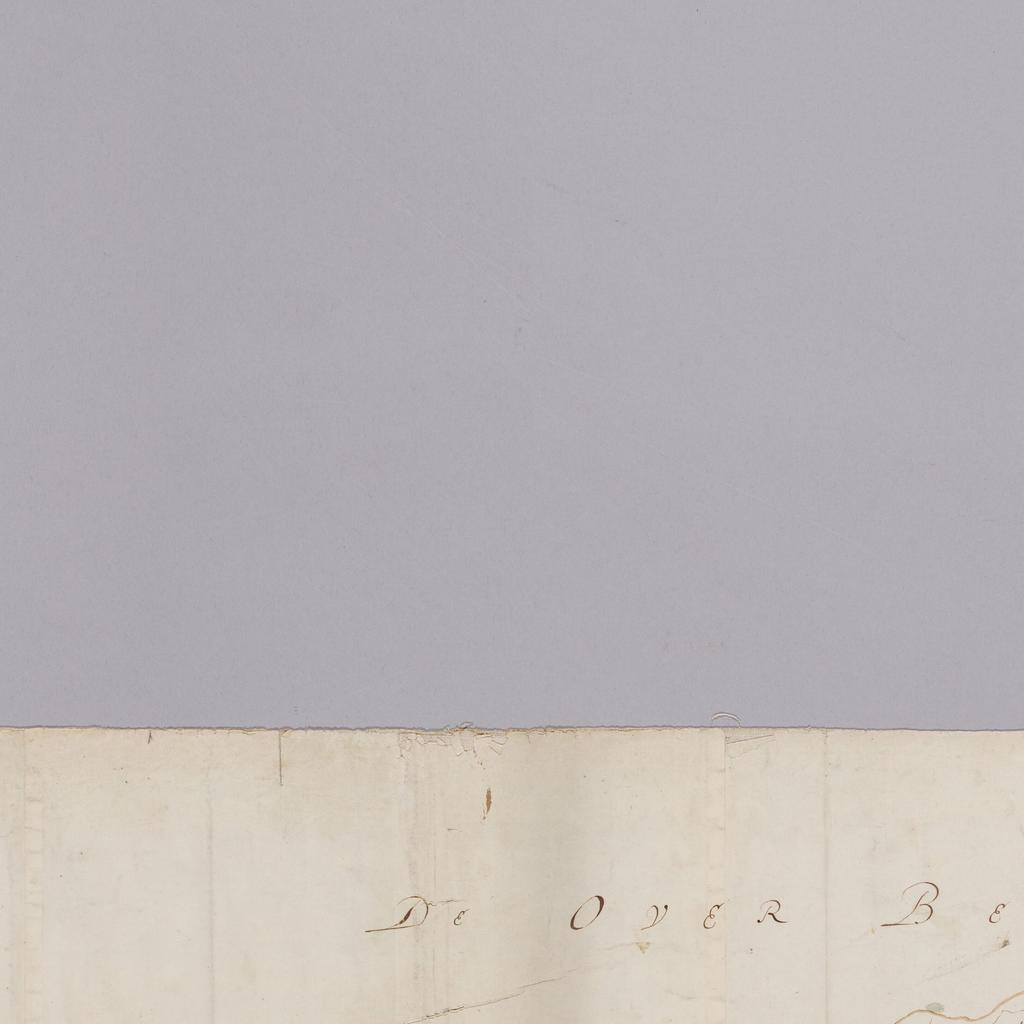 De Over Be